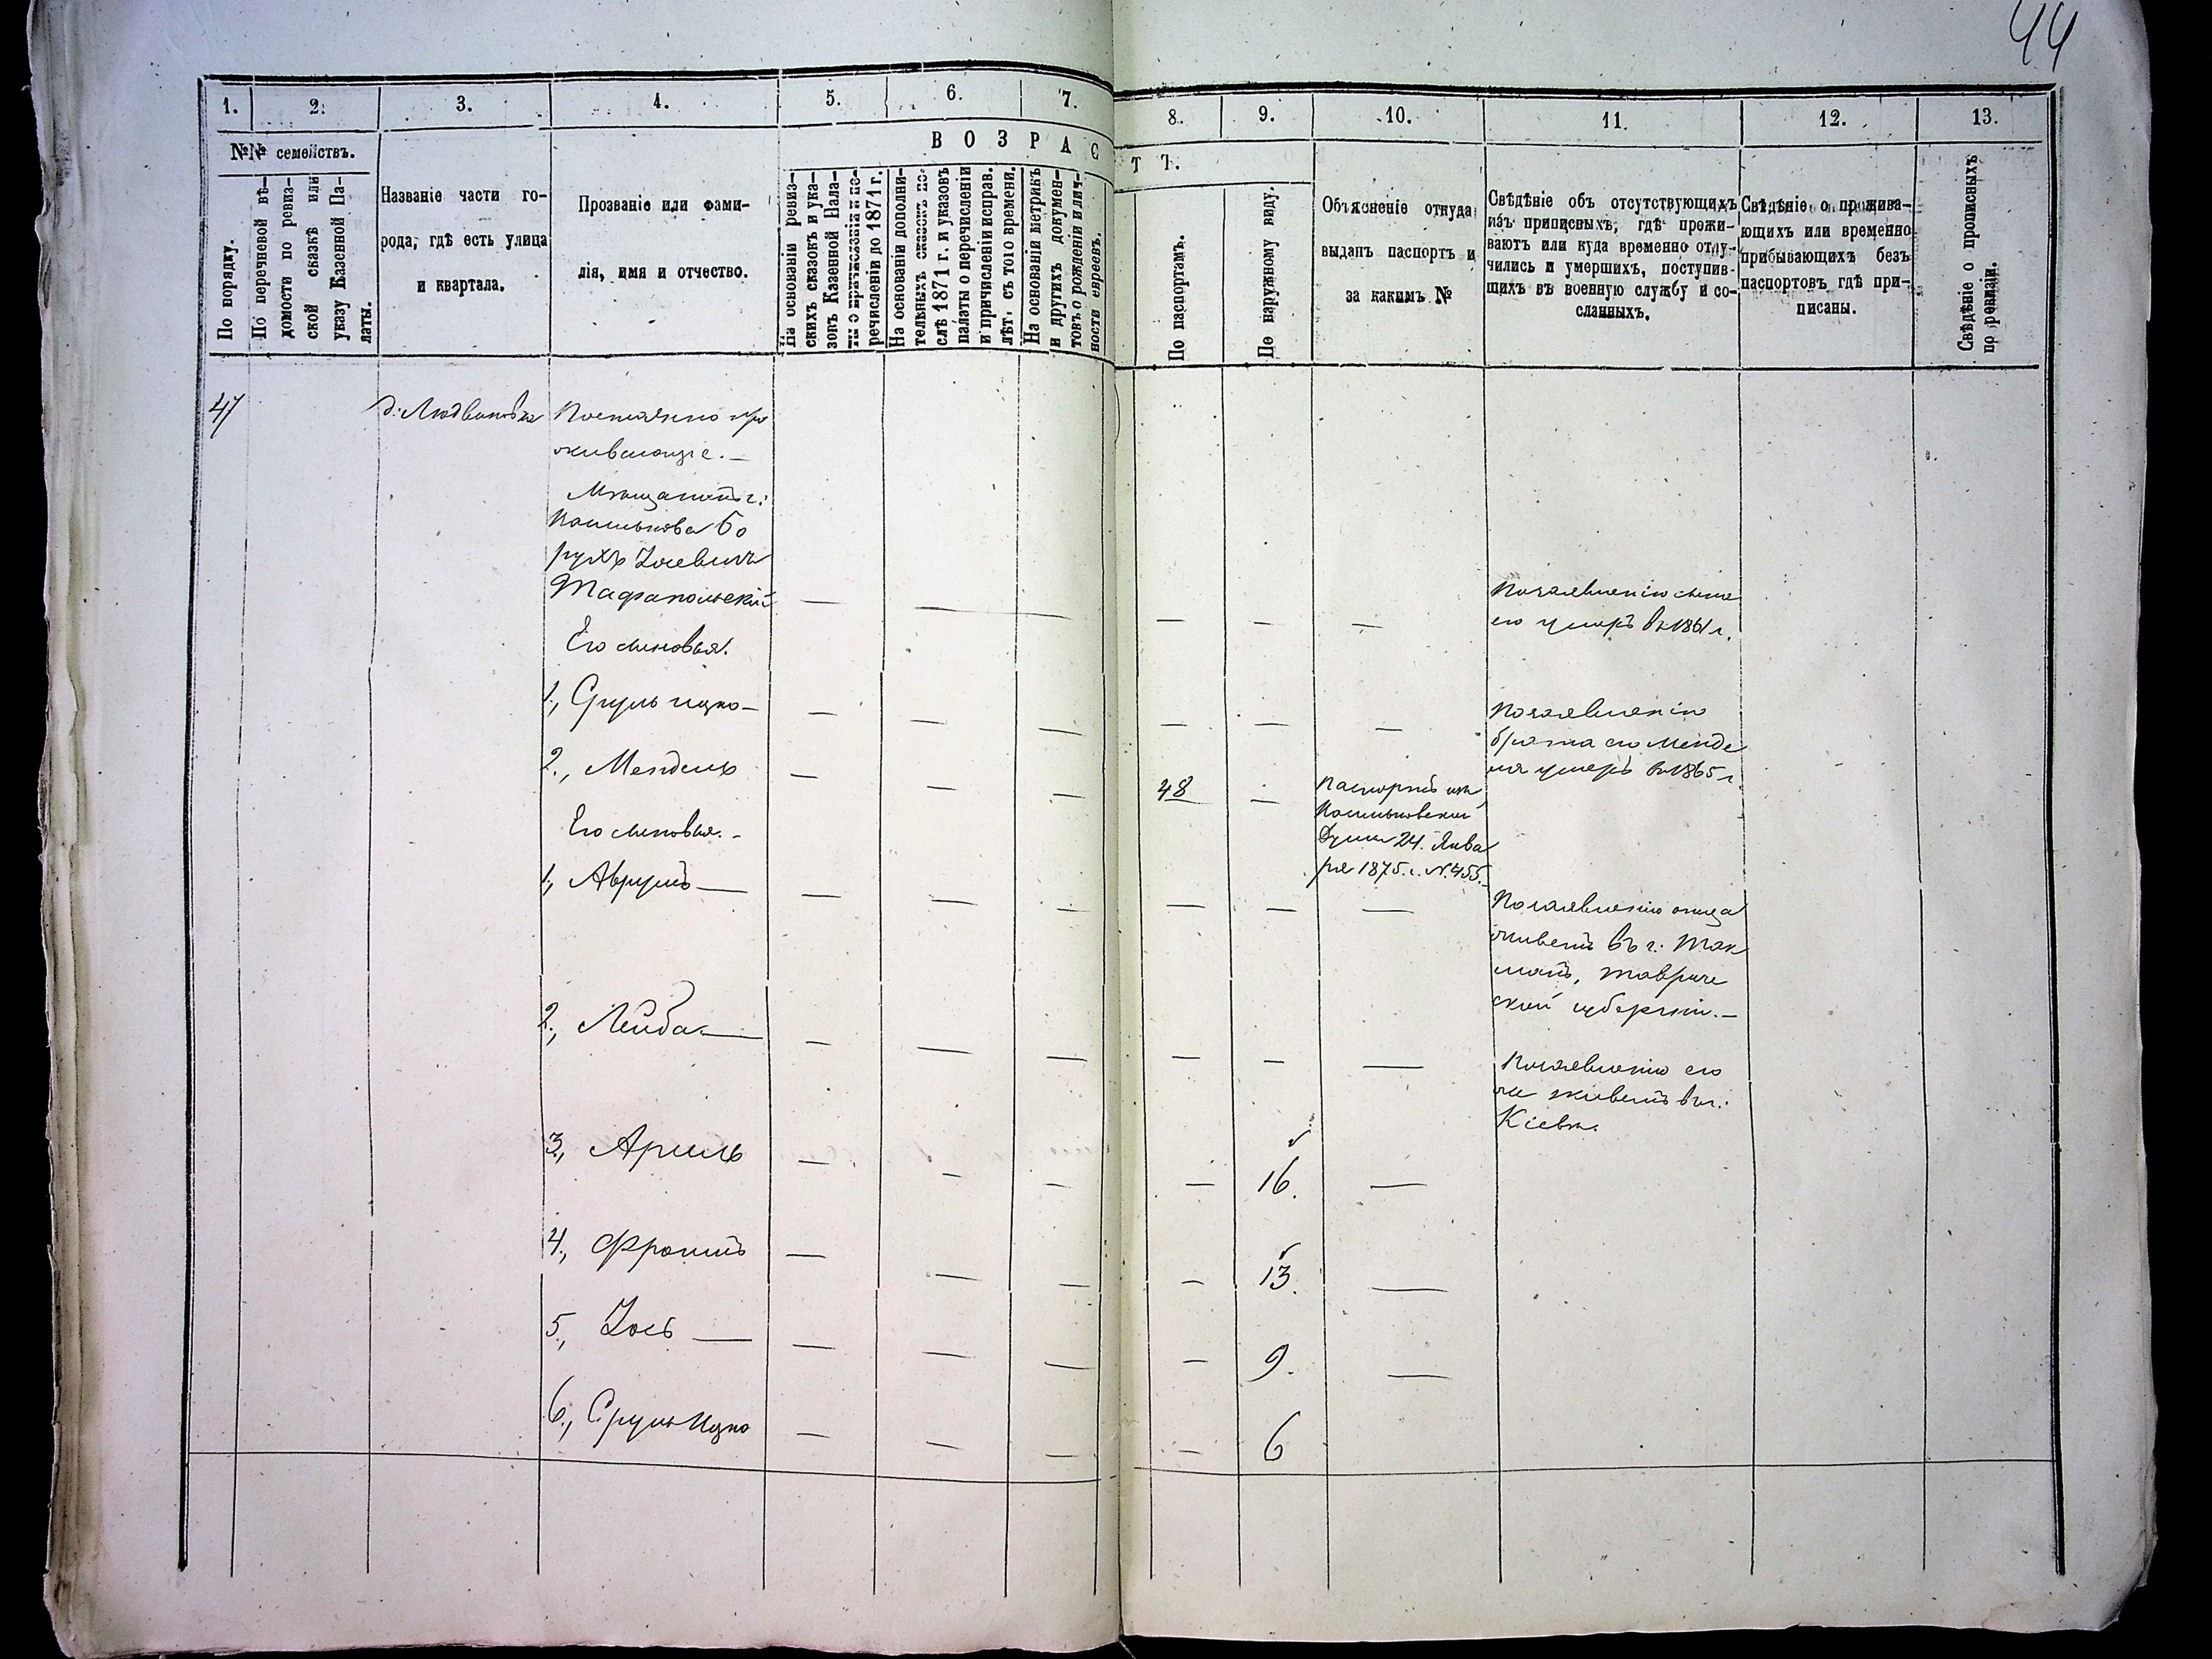 44
1. 2. 3. 4. 5. 6. 7. 8. 9. 10. 11. 12. 13.
№№ семействъ.
ВОЗРАС
ТЪ.
По порядку.
По перечневой вѣ-
домости по ревиз-
ской сказкѣ или
указу Казенной Па-
латы.
Названіе части го-
рода, гдѣ есть улица
и квартала.
Прозваніе или фами-
лія, имя и отчество.
На основаніи ревиз-
скихъ сказокъ и ука-
зовъ Казенной Пала-
ты о причисленіи и пе-
речисленіи до 1871 г.
На основаніи дополни-
тельныхъ сказокъ по-
слѣ 1871 г. и указовъ
палаты о перечисленіи
и причисленіи исправ.
лѣт. съ того времени.
На основаніи метрикъ
и другихъ докумен-
товъ о рожденіи или ч-
ности евреевъ.
По паспортамъ.
По наружному виду.
Объясненіе откуда
выданъ паспортъ и
за какимъ №
Свѣдѣніе объ отсутствующихъ
изъ приписныхъ, гдѣ прожи-
ваютъ или куда временно отлу-
чились и умершихъ, поступив-
шихъ въ военную службу и со-
сланныхъ.
Свѣдѣніе о прожива-
ющихъ или временно
прибывающихъ безъ
паспортовъ гдѣ при-
писаны.
Свѣдѣніе о прописныхъ
по ревизіи.
47 д: Людвиновка Постоянно про
живающіе. —
Мѣщанинъ г:
Василькова Бо
рухъ Іосевичъ
Тафапольскій — — — — — — По заявленію сына
его умеръ въ 1861 г.
Его сыновья.
1., Сруль ицко — — — — — — — По заявленію
брата его Менде
ля умеръ въ 1865 г.
2., Мендель — — — 48 — Паспортъ изъ
Васильковской
Думы 24. Янва
ря 1875. г. №. 455.
Его сыновья. —
1., Аврумъ — — — — — — — По заявленію отца
живетъ въ г: Ток
макъ, Тавриче
ской губерніи. —
2., Лейба — — — — — — — По заявленію его
же живетъ въ г:
Кіевѣ.
3., Арииль — — — — 16. —
4., Фроимъ — — — — 13. —
5., Іось — — — — — 9. —
6., Сруль Ицко — — — — 6